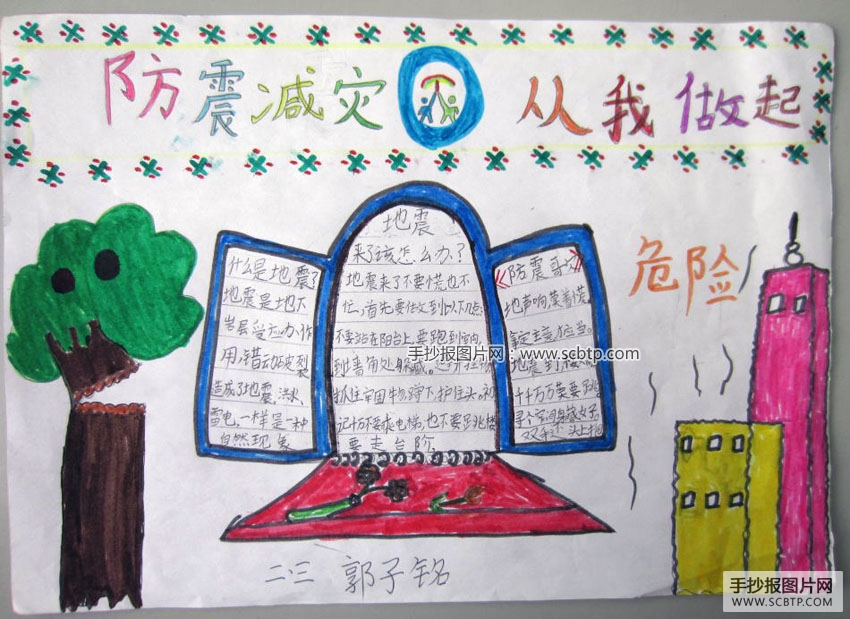 防震减灾 从我做起
什么是地震？
地震是地下
岩层受应力作
用，错动破裂
造成了地震，洪水、
雷电，一样是一种
自然现象
地震
来了该怎么办？
地震来了不要慌也不
忙，首先要住定到以下几点：
不要站在阳台上，要跑到室内
到墙角处躲藏。
抓住牢固物蹲下，护住头。
记十万不要乘电梯，也不要跳楼
要走台阶
《防震歌》
地声响，莫着慌
拿定主意
地震到
千万万莫要跳
双手 头上抱
危险
手抄报图片网：www.scbtp.com
二.三 郭子铭
手抄报图片网
WWW.SCBTP.COM